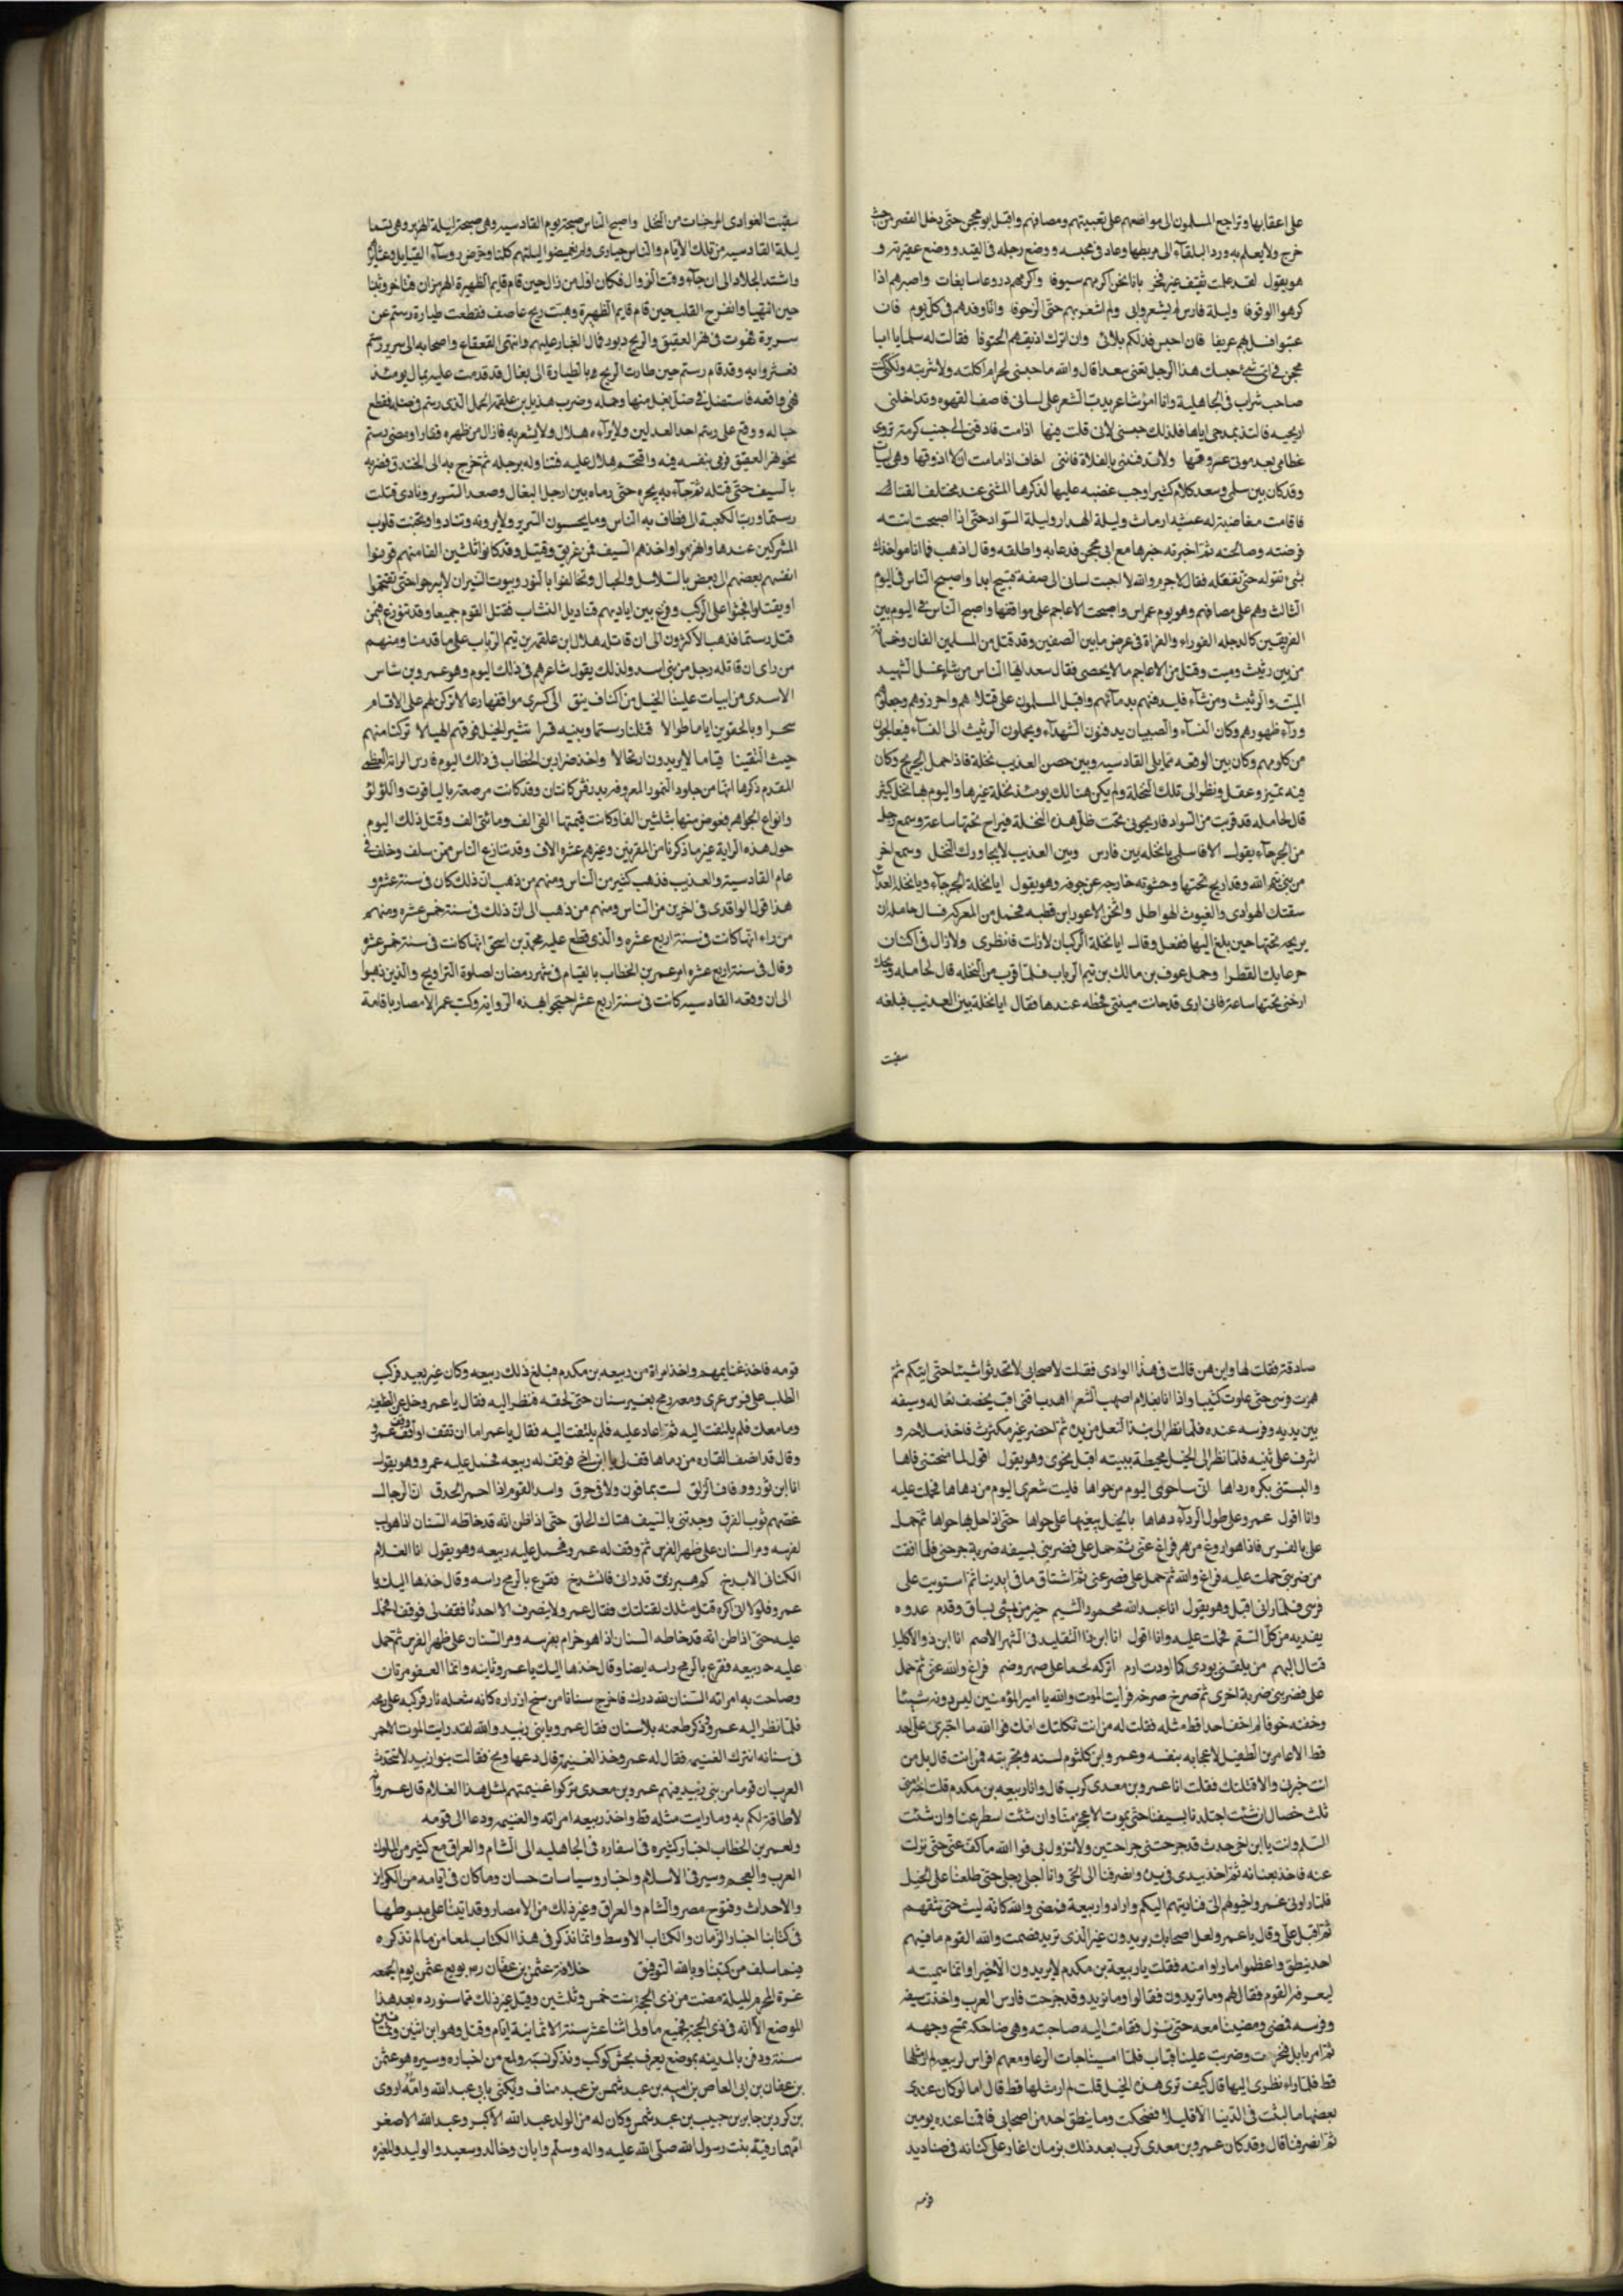 على اعقابها وتراجع المسلمون الى مواضعهم على تعبيتهم ومصافهم واقبل ابو محجن حتى دخل القصر من حيث
خرج ولا يعلم به ورد البلقاء الى مربطها وعاد فى محبسه ووضع رجله فى القيد ووضع عقيرته و
هو يقول لقد علمت ثقيف غير فخر بانا نحن اكرمهم سيوفا واكرمهم دروعا سابغات واصبرهم اذا
كرهوا الوقوفا وليلة فارس لم يشعروا بى ولم اشعر بهم حتى الزحوفا وانا وفدهم فى كل يوم فان
عتبوا فسل بهم عريفا فان احبس فذلكم بلائى وان اترك اذيقهم الحتوفا فقالت له سلمى يا ابا
محجن فى اى شئ حبسك هذا الرجل تعنى سعدا قال والله ما حبسنى لحرام اكلته ولا شربته ولكنى كنت
صاحب شراب فى الجاهلية وانا امرؤ شاعر يدب الشعر على لسانى فاصف القهوة وتداخلنى
اريحيه فالتذ بمدحى اياها فلذلك حبسنى لانى قلت فيها اذا مت فادفنى الى جنب كرمة تروى
عظامى بعد موتى عروقها ولا تدفننى بالفلاة فاننى اخاف اذا ما مت ان لا اذوقها وهى ابيات
وقد كان بين سلمى وسعد كلام كثير اوجب غضبه عليها لذكرها المثنى عند مختلف القنا
فاقامت مغاضبة له عشية ارماث وليلة الهدار وليلة السواد حتى اذا اصبحت اتته
فرضته وصالحته ثم اخبرته خبرها مع ابى محجن فدعا به واطلقه وقال اذهب فما انا مواخذك
بشئ تقوله حتى تفعله فقال لا جرم والله لا اجبت لسانى الى صفة قبيح ابدا واصبح الناس فى اليوم
الثالث وهم على مصافهم وهو يوم عمراس واصبحت الاعاجم على مواقفها واصبح الناس فى اليوم بين
الفريقين كالدجله الغوراء والفراة فى عرض ما بين الصفين وقد قتل من المسلمين الفان وخمسمائة
من بين رثيث وميت وقتل من الاعاجم ما لا يحصى فقال سعد ايها الناس من شاء غسل الشهيد
الميت والرثيث ومن شاء فليدفنهم بدمائهم واقبل المسلمون على قتلاهم واحرزوهم وجعلوهم
وراء ظهورهم وكان النساء والصبيان يدفنون الشهداء ويحملون الرثيث الى النساء فيعالجون
من كلومهم وكان بين الوقعه مما يلى القادسيه وبين حصن العذيب نخلة فاذا حمل الجريح وكان
فيه تميز وعقل ونظر الى تلك النخلة ولم يكن هنالك يومئذ نخلة غيرها واليوم بها نخل كثير
قال لحامله قد قربت من السواد فاريحونى تحت ظل هذه النخلة فيراح تحتها ساعة وسمع رجل
من الجرحاء يقول الا فاسلمى يا نخله بين فارس وبين العذيب لا يجاورك النخل وسمع اخر
من بنى تيم الله وقد اريح تحتها وحشوته خارجه عن جوفه وهو يقول ايا نخلة الجرحاء ويا نخلة العدا
سقتك الهوادى والغيوث الهواطل واثخن الاعور ابن قطبه فحمل من المعركة فسال حامله ان
يريحه تحتها حين بلغ اليها ففعل وقال ايا نخلة الركبان لا زلت فانظرى ولا زال فى اكناف
جرعايك القطرا وحمل عوف بن مالك بن تيم الرباب فلما قرب من النخله قال لحامله ويحك
ارحنى تحتها ساعة فانى ارى قد حانت ميتتى فحطه عندها فقال ايا نخلة بين العذيب فبلغه
سقيت
سقيت الغوادى المرجنات من النخل واصبح الناس صبيحة يوم القادسيه وهى صبيحة ليلة الهرير وهى تسما
ليلة القادسيه من تلك الايام والناس حيارى ولم يغمضوا ليلتهم كلها وحرض روساء القبايل وعشايرهم
واشتد الجلاد الى ان جاء وقت الزوال فكان اول من زال حين قام قايم الظهيرة الهرمزان فتاخر وثبتا
حين انتهيا وانفرج القلب حين قام قايم الظهيرة وهبت ريح عاصف فقطعت طيارة رستم عن
سريره فهوت فى نهر العتيق والريح دبور فمال الغبار عليهم وانتهى القعقاع واصحابه الى سرير رستم
فعثروا به وقد قام رستم حين طارت الريح بالطيارة الى بغال قد قدمت عليه بمال يومئذ
فهى واقفه فاستظل فى ظل بغل منها وحمله وضرب هلال بن علقمه الحمل الذى رستم فى ظله فقطع
حباله ووقع على رستم احد العدلين ولا يراه هلال ولا يشعر به فازال من ظهره فقارا ومضى رستم
نحو نهر العتيق فرمى بنفسه فيه واقتحم هلال عليه فتناوله برجله ثم خرج به الى الخندق فضربه
بالسيف حتى قتله ثم جاء به يجره حتى رماه بين ارجل البغال وصعد السرير ونادى قتلت
رستما ورب الكعبة الى فطاف به الناس وما يحسون السرير ولا يرونه وتنادوا ونخبت قلوب
المشركين عندها وانهزموا واخذهم السيف فمن غريق وقتيل وقد كانوا ثلثين الفا منهم قرنوا
انفسهم بعضهم الى بعض بالسلاسل والحبال وتحالفوا بالنور وبيوت النيران لا يبرحوا حتى يفتحوا
او يقتلوا فجثوا على الركب وقرع بين ايديهم قناديل النشاب فقتل القوم جميعا وقد تنوزع فيمن
قتل رستما فذهب الاكثرون الى ان قاتله هلال ابن علقمه بن تيم الرباب على ما قدمنا ومنهم
من راى ان قاتله رجل من بنى اسد ولذلك يقول شاعرهم فى ذلك اليوم وهو عمرو بن شاس
الاسدى من ابيات علينا الخيل من اكناف بنق الى كسرى موافقها رعالا تركن لهم على الاقسام
سحرا وبالحقوين اياما طوالا قتلنا رستما وبنيه قسرا تثير الخيل فوقهم الهيالا تركنا منهم
حيث التقينا قياما لا يريدون ارتحالا واخذ ضرار بن الخطاب فى ذلك اليوم فارس الراية العظمى
المقدم ذكرها انها من جلود النمور المعروفه بدرفش كانتان وقد كانت مرصعة بالياقوت واللؤلؤ
وانواع الجواهر فعوض منها بثلثين الفا وكانت قيمتها الفى الف ومائتى الف وقتل ذلك اليوم
حول هذه الراية غير ما ذكرنا من المقرنين وغيرهم عشرة الاف وقد تنازع الناس ممن سلف وخلف فى
عام القادسية والعذيب فذهب كثير من الناس ومنهم من ذهب ان ذلك كان فى سنة ست عشره و
هذا قول الواقدى فى اخرين من الناس ومنهم من ذهب الى ان ذلك فى سنة خمس عشره ومنهم
من راى انها كانت فى سنة اربع عشره والذى قطع عليه محمد بن اسحق انها كانت فى سنة خمس عشرة
وقال فى سنة اربع عشره امر عمر بن الخطاب بالقيام فى شهر رمضان لصلوة التراويح والذين ذهبوا
الى ان وقعه القادسيه كانت فى سنة اربع عشر احتجوا بهذه الرواية وكتب عمر الامصار باقامة
صادقة فقلت لها واين هن قالت فى هذا الوادى فقلت لاصحابى لا تحدثوا شيئا حتى اتيكم ثم
همزت فرسى حتى علوت كثيبا واذا انا بغلام اصهب الشعر اهدب اقنى اقب يخصف نعاله وسيفه
بين يديه وفرسه عنده فلما نظر الى نبذ النعل من يده ثم احضر غير مكترث فاخذ سلاحه و
اشرف على ثنيه فلما نظر الى الخيل محيطة ببيته اقبل نحوى وهو يقول اقول لما منحتنى فاها
والبستنى بكره رداها انى ساحوى اليوم من حواها فليت شعرى اليوم من دهاها فحملت عليه
وانا اقول عمرو على طول الردآء دهاها بالخيل يبغيها على حواها حتى اذا حل بها حواها ثم حمل
على بالفرس فاذا هو اروغ من هر فراغ عنى ثم حمل على فضربنى بسيفه ضربة جرحنى فلما افقت
من ضربتى حملت عليه فراغ والله ثم حمل على فصرعنى ثم اشتاق ما فى ايدينا ثم استويت على
فرسى فلما رانى اقبل وهو يقول انا عبد الله محمود الشيم خير من يمشى بساق وقدم عدوه
يفديه من كل السقم فحملت عليه وانا اقول انا ابن ذى التقليد فى الشهر الاصم انا ابن ذو الاكليل
قتال البهم من يلقنى يودى كما اودت ارم اتركه لحما على ظهر وضم فراغ والله عنى ثم حمل
على فضربنى ضربة اخرى ثم صرخ صرخه فرايت الموت والله يا امير المؤمنين ليس دونه شيئا
وخفته خوفا لم اخف احدا قط مثله فقلت له من انت ثكلتك امك فوالله ما اجترى على احد
قط الا عامر بن الطفيل لاعجابه بنفسه وعمرو ابن كلثوم لسنه وتجربته فمن انت قال بل من
انت خبرنى والا قتلتك فقلت انا عمرو بن معدى كرب قال وانا ربيعه بن مكدم قلت اختر منى
ثلث خصال ان شئت اجتلدنا بسيفنا حتى يموت الاعجز منا وان شئت اسطرعنا وان شئت
السلم وانت يا ابن اخى حدث قد جرحتنى جراحتين ولا تزول بى فوالله ما كف عنى حتى نزلت
عنه فاخذ بعنانه ثم اخذ بيدى فى يده وانصرفنا الى الحى وانا اجر رجلى حتى طلعنا على الخيل
فلما راونى غمزوا خيولهم الى فناديتهم اليكم وارادوا ربيعة فمضى والله كانه ليث حتى شقهم
ثم اقبل على وقال يا عمرو لعل اصحابك يريدون غير الذى تريد فصمت والله القوم ما فيهم
احد ينطق واعظموا ما راوا منه فقلت يا ربيعة بن مكدم لا يريدون الا خيرا وانما سميته
ليعرفه القوم فقال لهم وما تريدون فقالوا وما نريد وقد جرحت فارس العرب واخذت سيفه
وفرسه فمضى ومضينا معه حتى نزل فقامت اليه صاحبته وهى ضاحكه تمسح وجهه
ثم امر بابل فنحرت وضربت علينا قباب فلما امسينا جات الرعا ومعهم افراس لربيعه لم ار مثلها
قط فلما راى نظرى اليها قال كيف ترى هذه الخيل قلت لم ار مثلها قط قال اما لو كان عندى
بعضها ما لبثت فى الدنيا الا قليلا فضحكت وما ينطق احد من اصحابى فاقمنا عنده يومين
ثم انصرفنا قال وقد كان عمرو بن معدى كرب بعد ذلك بزمان اغار على كنانه فى صناديد
قومه
قومه فاخذ غنايمهم واخذ امراة من ربيعه بن مكدم فبلغ ذلك ربيعه وكان غير بعيد فركب
الطلب على فرس عرى ومعه رمح بغير سنان حتى لحقه فنظر اليه فقال يا عمرو خل عن الظعينه
وما معك فلم يلتفت اليه ثم اعاد عليه فلم يلتفت اليه فقال يا عمرو اما ان تقف او اقف فوقف عمرو
وقال قد انصف القاره من رماها قف لى يا ابن اخى فوقف له ربيعه فحمل عليه عمرو وهو يقول
انا ابن ثور ووقاف الزلق لست بمافون ولا فى خرق واسد القوم اذا احمر الحدق انا لرجال
عضهم نوب الفرق وجدتنى بالسيف هتاك الحلق حتى اذا ظن انه قد خالطه السنان اذا هو لبب
لفرسه ومر السنان على ظهر الفرس ثم وقف له عمرو فحمل عليه ربيعه وهو يقول انا الغلام
الكنانى الابذخ كم هبرزى قد رانى فانشدخ فقرع بالرمح راسه وقال خذها اليك يا
عمرو فلولا انى اكره قتل مثلك لقتلتك فقال عمرو ولا ينصرف الا احدنا فقف لى فوقف فحمل
عليه حتى اذا ظن انه قد خالطه السنان اذا هو حزام بفرسه ومر السنان على ظهر الفرس ثم حمل
عليه ربيعه فقرع بالرمح راسه ايضا وقال خذها اليك يا عمرو ثانيه وانما العفو مرتان
وصاحت به امراته السنان لله درك فاخرج سنانا من سنخ ازاره كانه شعله نار فركبه على رمحه
فلما نظر اليه عمرو وذكر طعنه بلا سنان فقال عمرو يا بنى زبيد والله لقد رايت الموت الاحمر
فى سنانه اترك الغنيمه فقال له عمرو خذ الغنيمة قال دعها ويح فقالت بنو زبيد لا تتحدث
العرب ان قوما من بنى زبيد فيهم عمرو بن معدى تركوا غنيمتهم لمثل هذا الغلام قال عمرو وانه
لا طاقة لكم به وما رايت مثله قط واخذ ربيعه امراته والغنيمه ودعا الى قومه
ولعمر بن الخطاب اخبار كثيره فى اسفاره فى الجاهليه الى الشام والعراق مع كثير من الملوك
العرب والعجم وسير فى الاسلام واخبار وسياسات حسان وما كان فى ايامه من الكواين
والاحداث وفتوح مصر والشام والعراق وغير ذلك من الامصار وقد اتينا على مبسوطها
فى كتابنا اخبار الزمان والكتاب الاوسط وانما نذكر فى هذا الكتاب لمعا من ما لم نذكره
فيما سلف من كتبنا وبالله التوفيق خلافة عثمن بن عفان رض بويع عثمن يوم الجمعه
غرة المحرم لليلة مضت من ذى الحجة سنت خمس وثلثين وقيل غير ذلك مما سنورده بعد هذا
الموضع الا انه فى ذى الحجة فجميع ما ولى اثنا عشر سنة الا ثمانية ايام وقتل وهو ابن اثنين وثمانين
سنة ودفن بالمدينه بموضع يعرف بحش كوكب ونذكر نسبه ولمع من اخباره وسيره هو عثمن
بن عفان بن ابى العاص بن اميه بن عبد شمس بن عبد مناف ويكنى بابى عبد الله وامه اروى
بن كرز بن جابر بن حبيب بن عبد شمس وكان له من الولد عبد الله الاكبر وعبد الله الاصغر
امهما رقية بنت رسول الله صلى الله عليه واله وسلم وابان وخالد وسعيد والوليد والمغيره